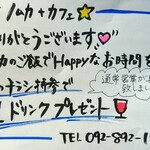 ルカ+カフェ
りがとうございます
カのご飯でHappyなお時間を
通常営業が
致しま
チラシ持参で
ドリンクプレゼント
TEL 092-892-1